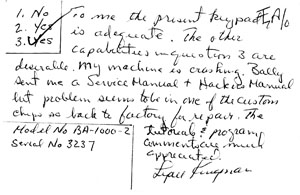 1. No
2. Yes
3. Yes
To me the present keypad
is adequate. The other
capabilities in question 3 are
desirable. My machine is crashing. Bally
sent me a Service Manual + Hackers Manual
but problem seems to be in one of the custom
chips so back to factory for repair. The
Tutorials & programs
comments are much
appreciated.
Model No BA-1000-2
Serial No 3237
Kingman